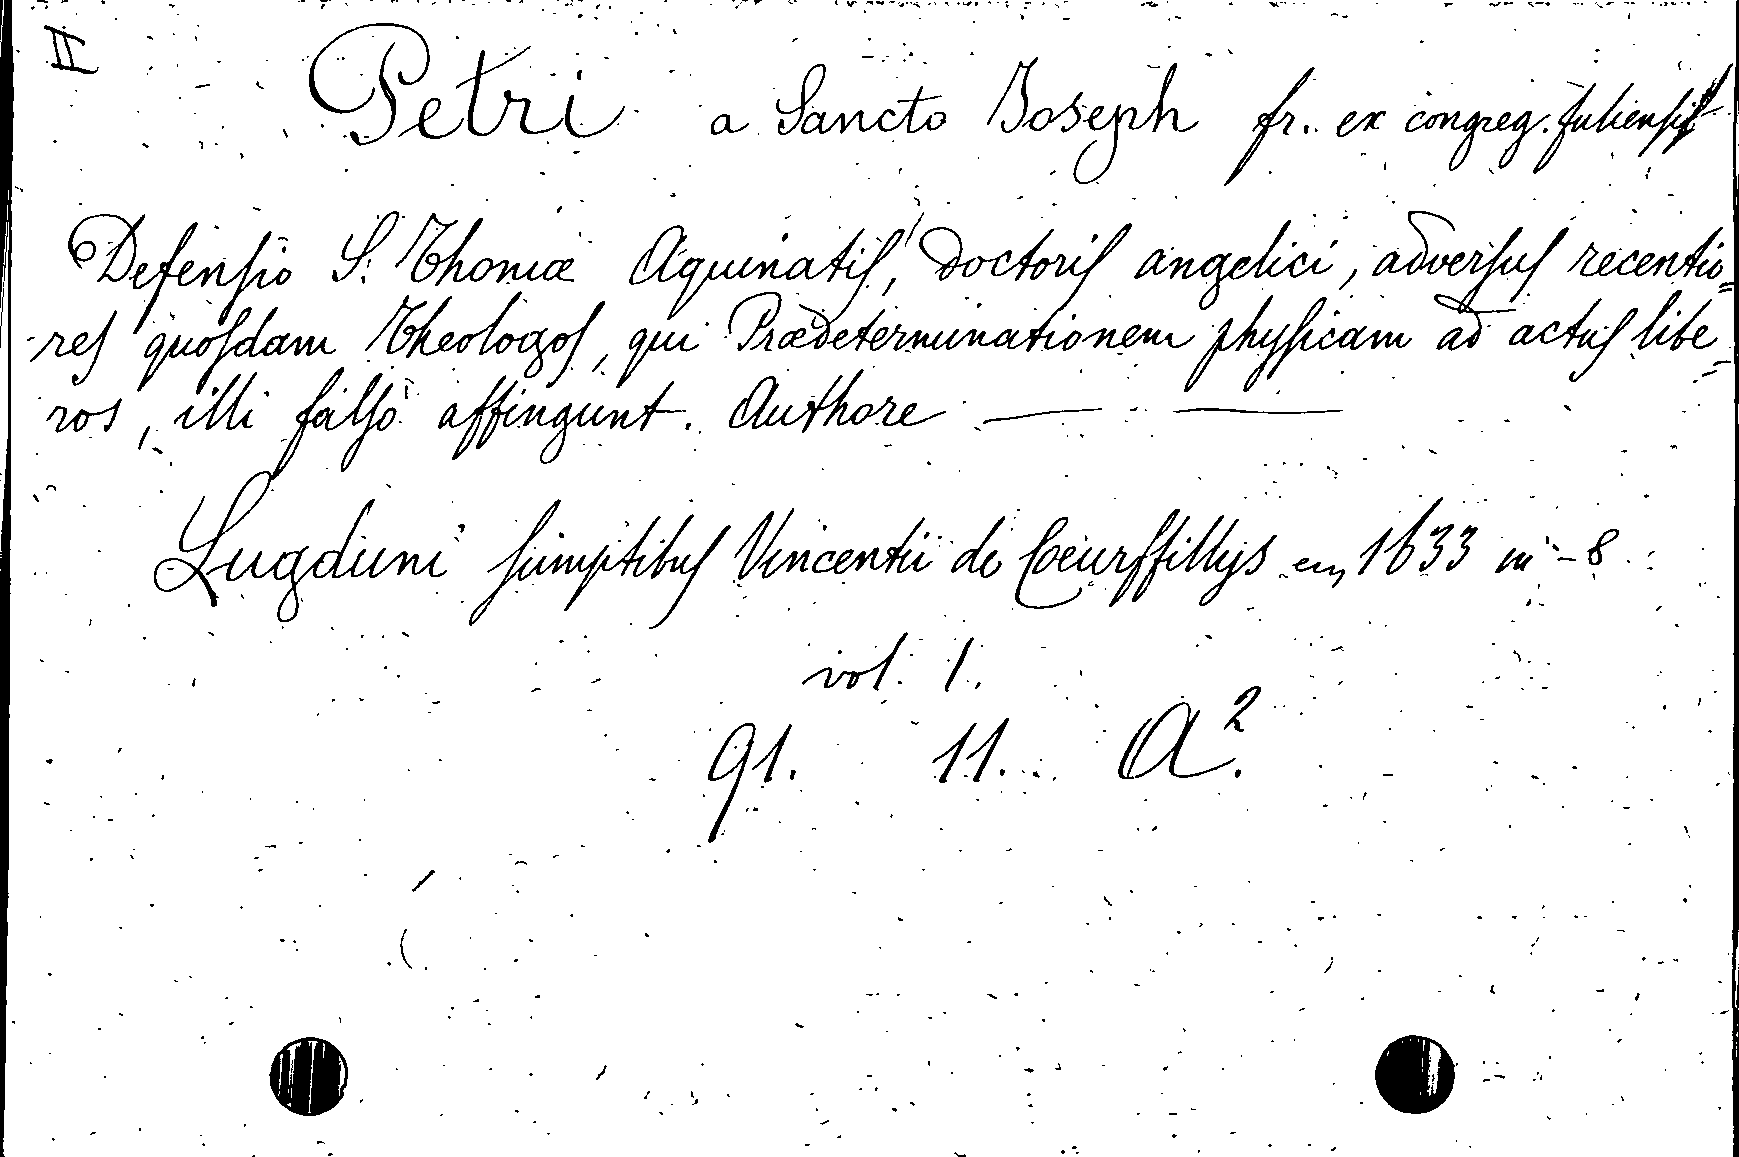 II
Petri a Sancto Joseph fr. ex congreg. fuliensis
Defensio S. Thomæ Aquinatis, doctoris angelici, adversus recentio=
-res quosdam theologos, qui Prædeterminationem physicam ad actus libe=
ros, illi falsò affingunt. Authore — —
Lugduni sumptibus Vincentii de Cœurssillys em 1633 in-8
vol. 1.
91. 11. A².